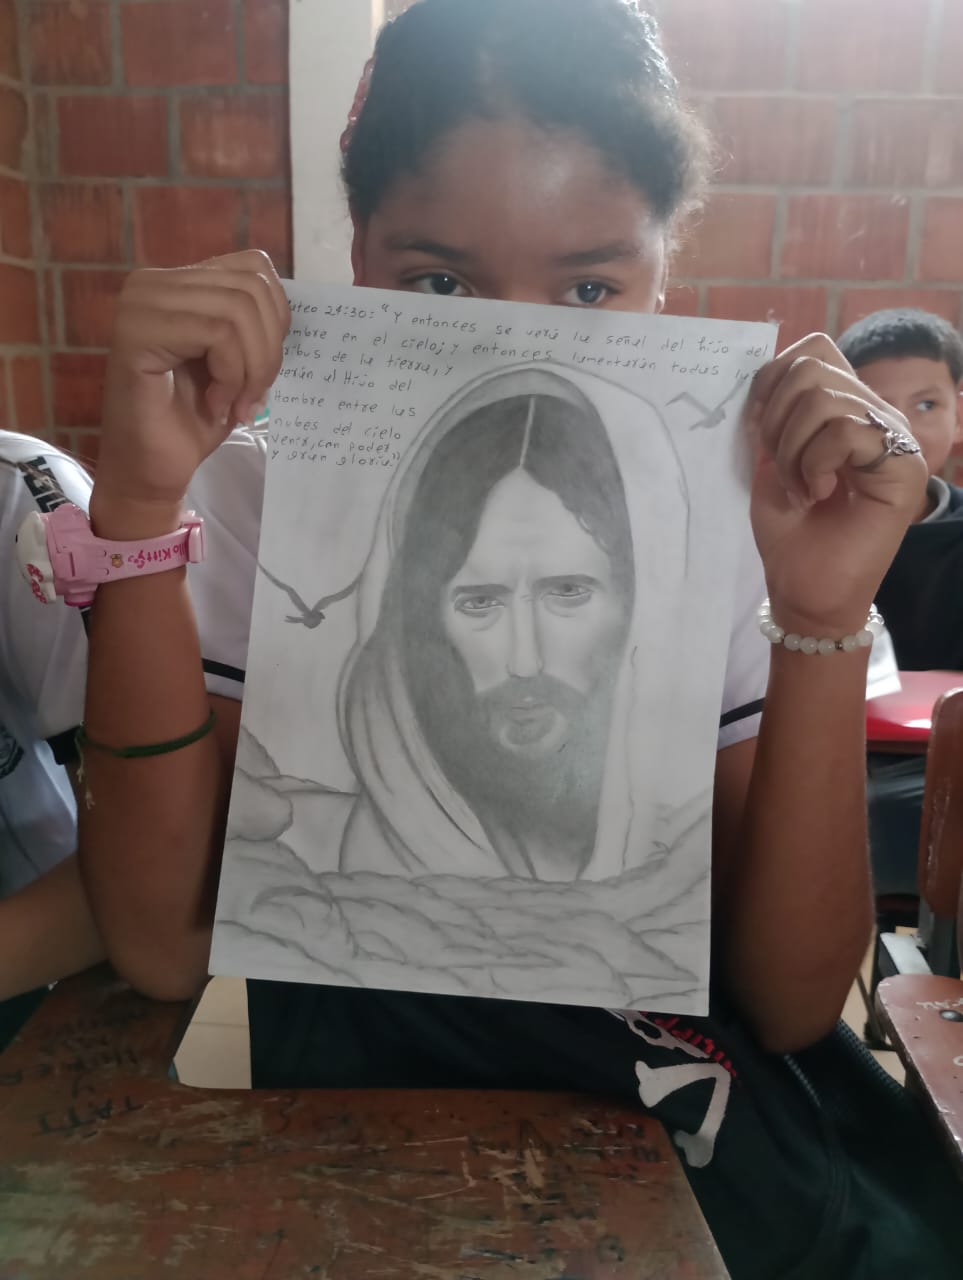 ateo 24:30: "Y entonces se verá la señal del hijo del
ombre en el cielo; y entonces lamentarán todas las
ribus de la tierra, y
verán al Hijo del
Hombre entre las
nubes del cielo
venir, con poder
y gran gloria."
Hello Kitty
TATI